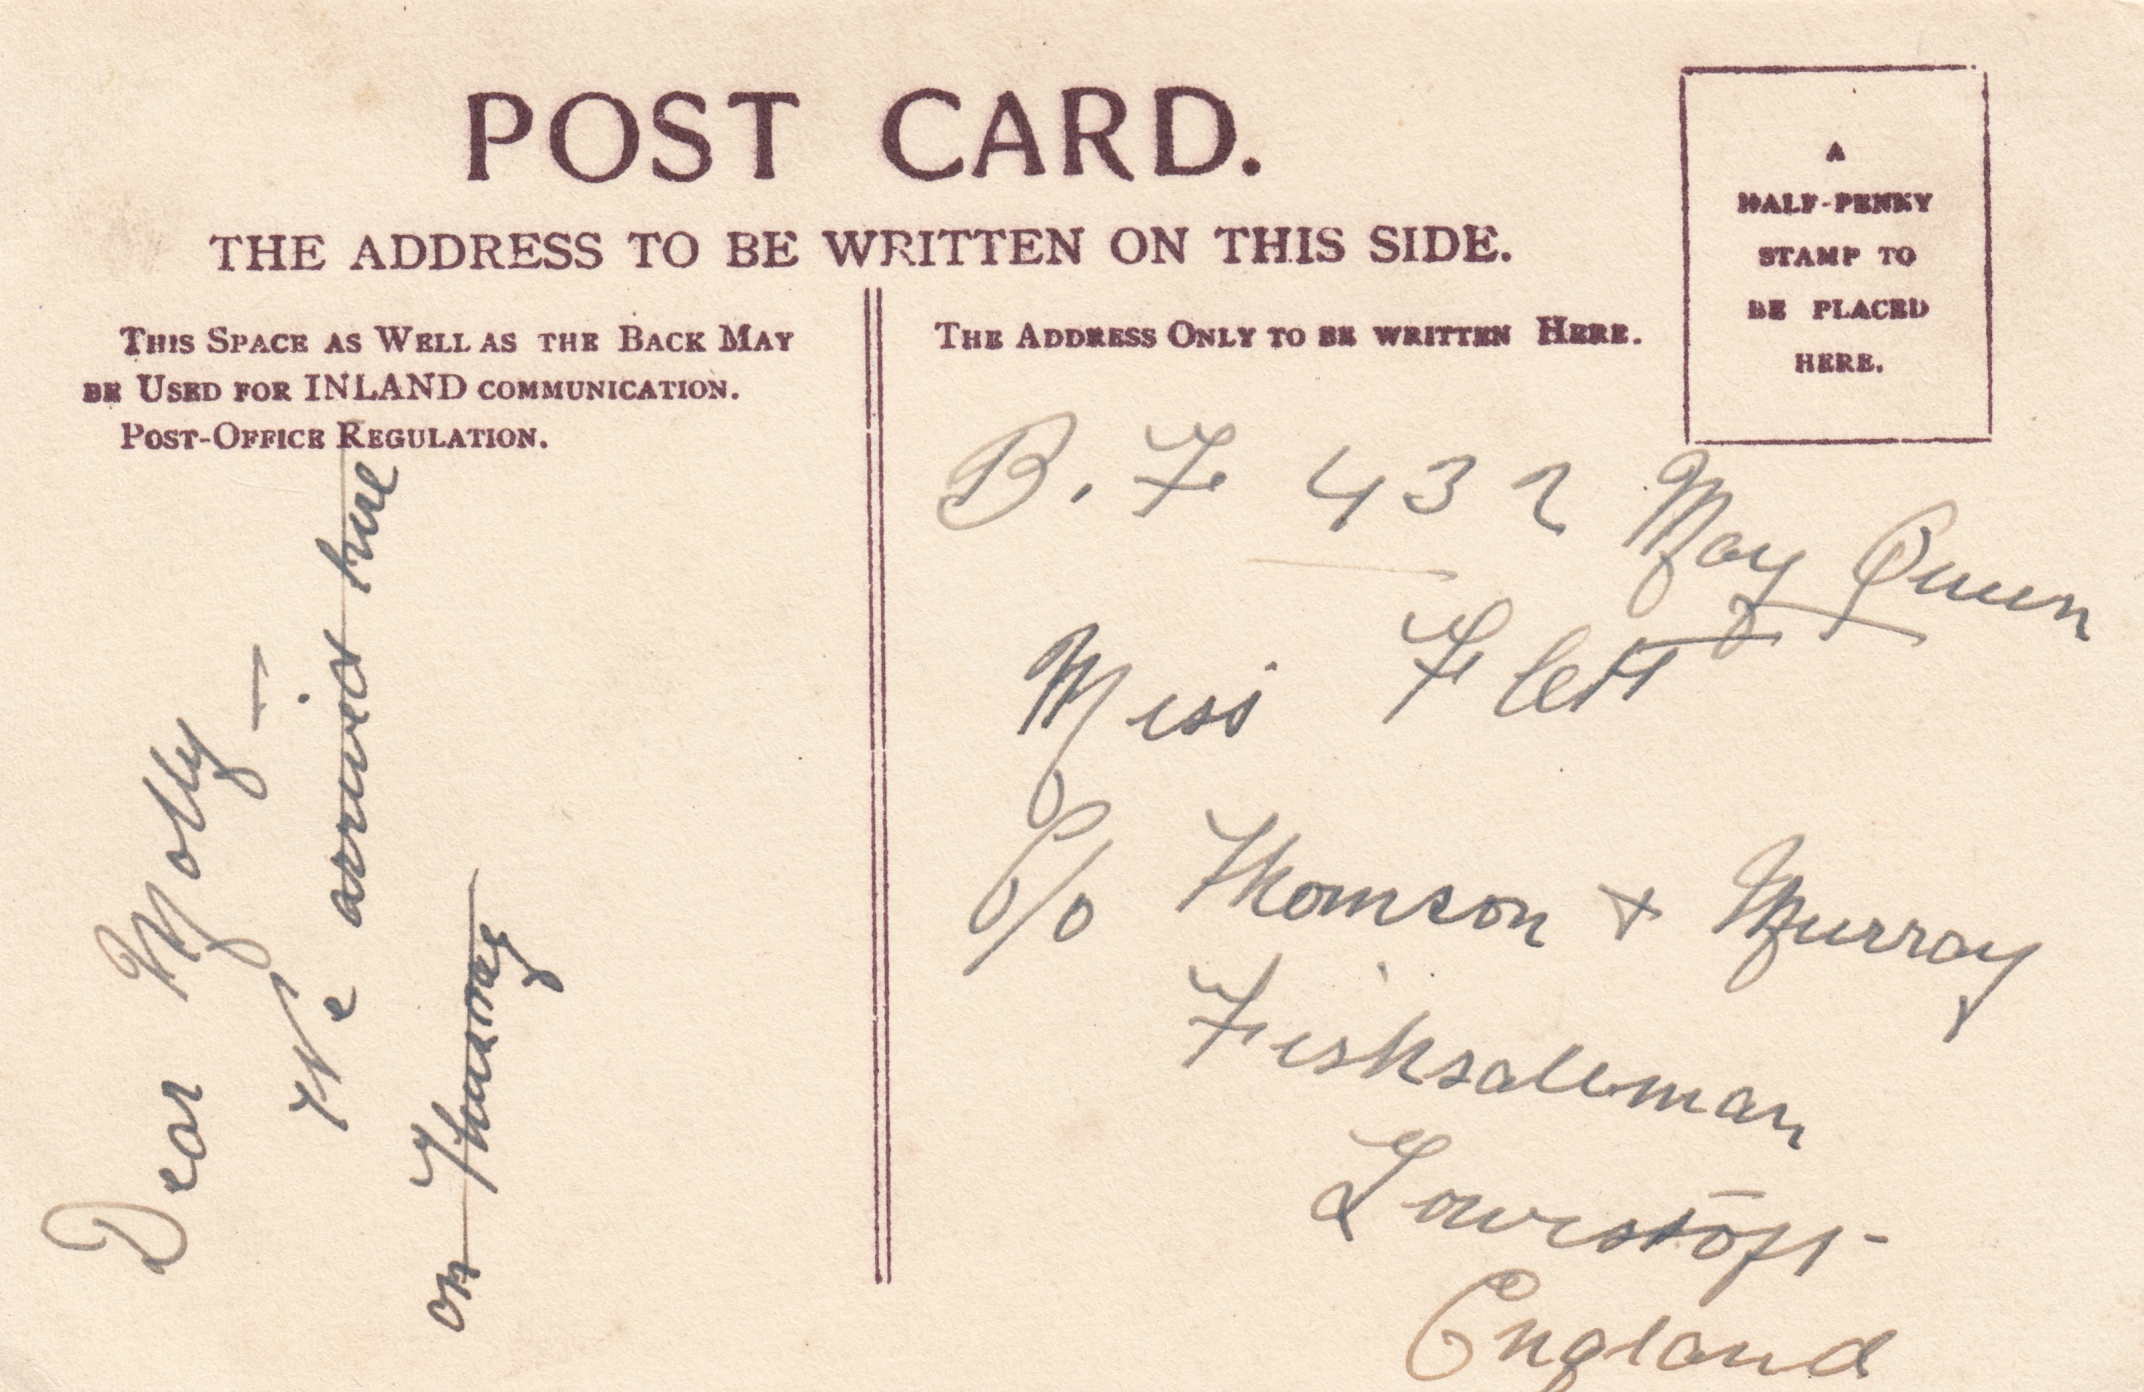 POST CARD.
THE ADDRESS TO BE WRITTEN ON THIS SIDE.
THIS SPACE AS WELL AS THE BACK MAY
BE USED FOR INLAND COMMUNICATION.
POST-OFFICE REGULATION.
THE ADDRESS ONLY TO BE WRITTEN HERE.
A
HALF-PENNY
STAMP TO
BE PLACED
HERE.
Dear Molly –
We arrived here
on Thursday
B. F 432 May Queen
Miss Flett
C/o Thomson + Murray
Fishsalesman
Lowestoft
England